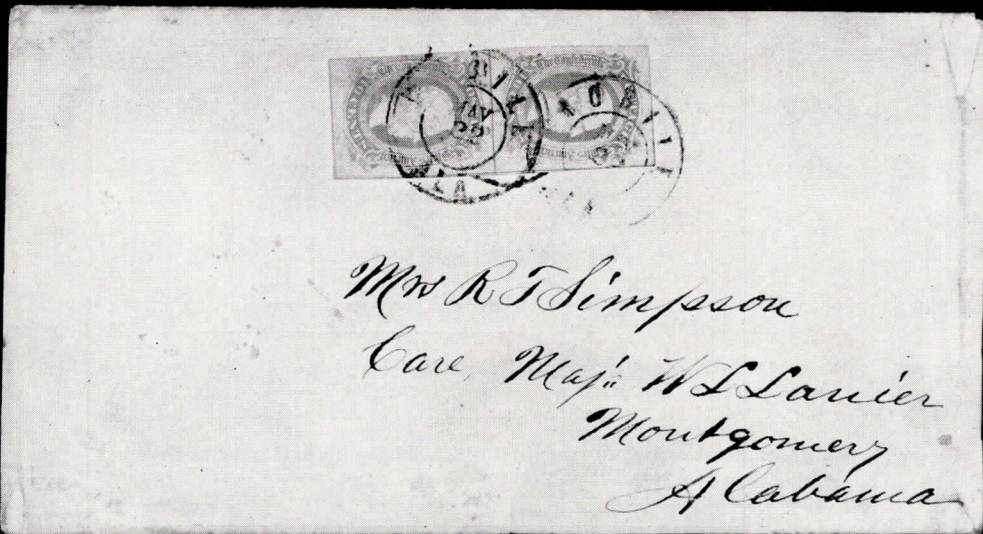 MOBILE
MAY
22
ALA
MOBILE
ALA
Mrs R T Simpson
Care, Maj: W L Lanier
Montgomery
Alabama